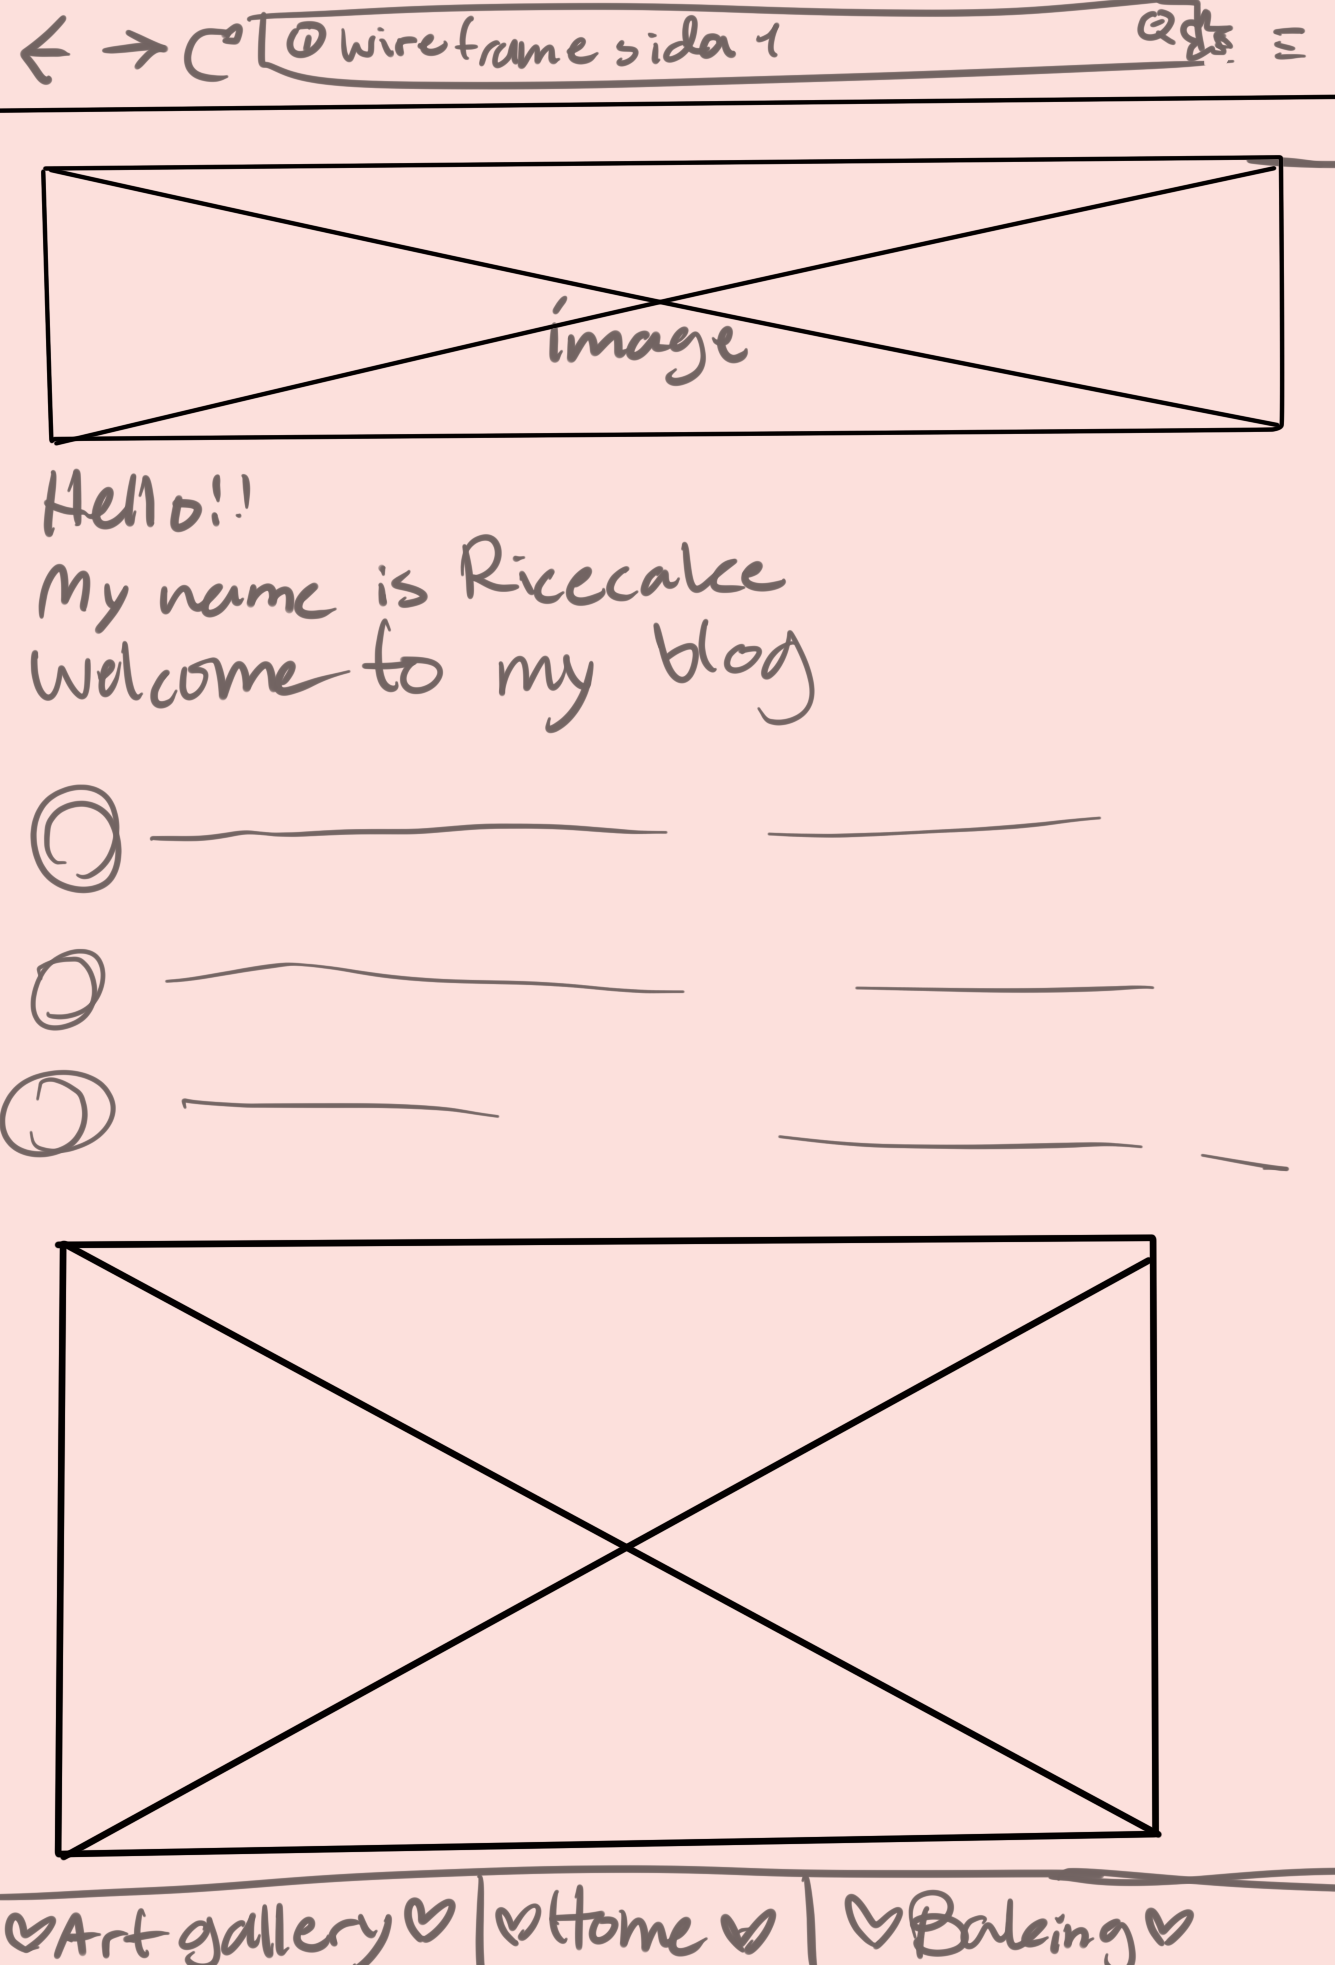 wireframe sida 1
image
Hello!!
My name is Ricecake
Welcome to my blog
Art gallery
Home
Baking